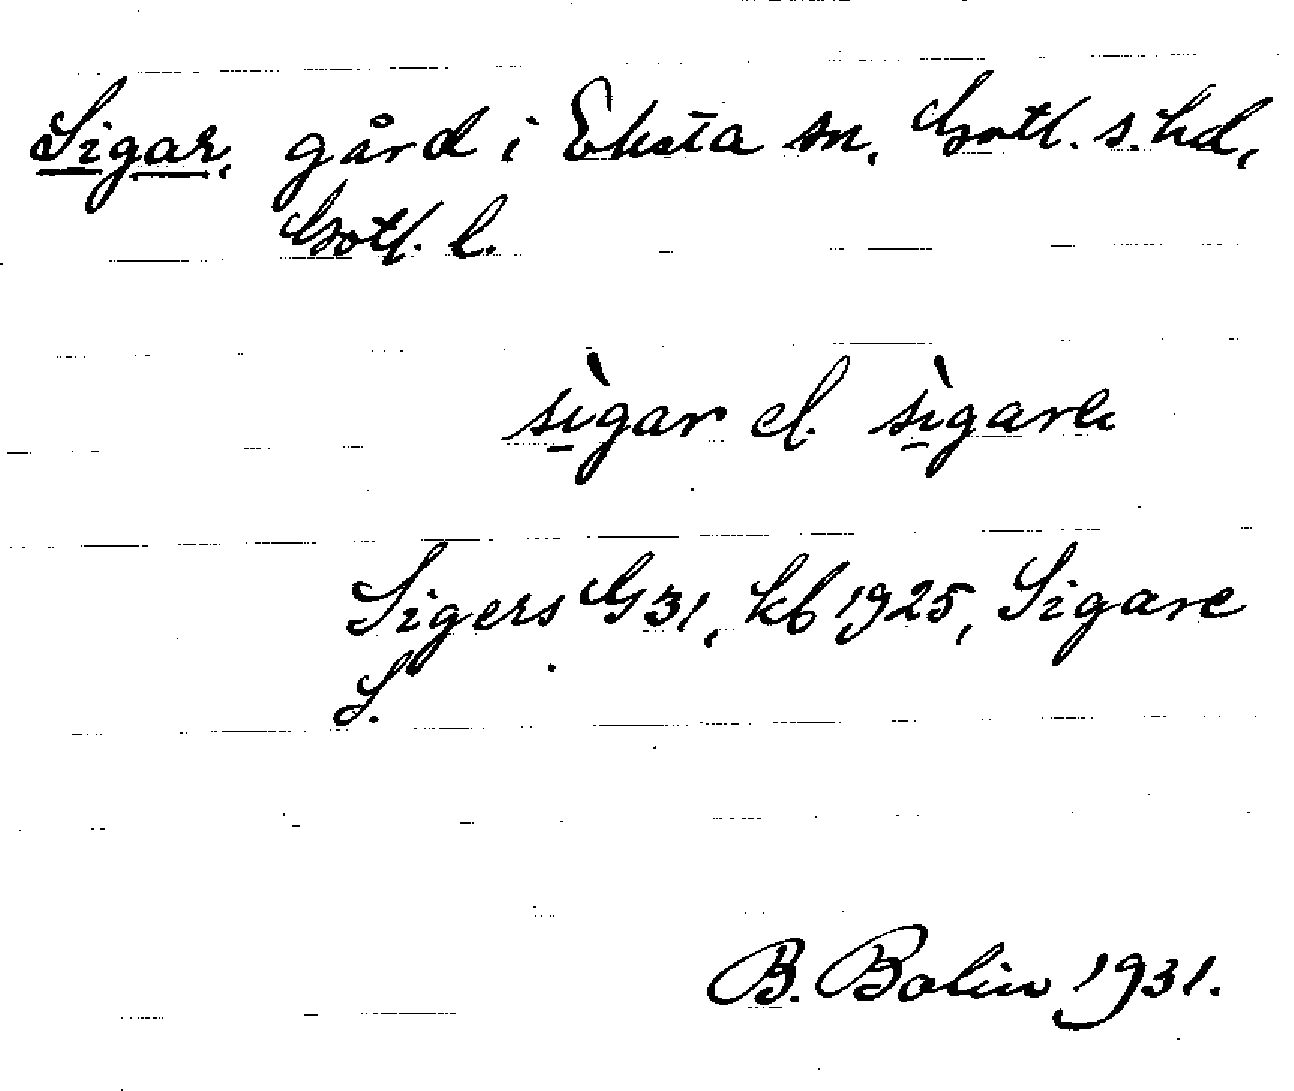 Sigar, gård i Eksta sn. Gotl. s. hd,
Gotl. l.
sìgar el. sìgarə
Sigers G31, kb 1925, Sigare
S.
B. Bolin 1931.